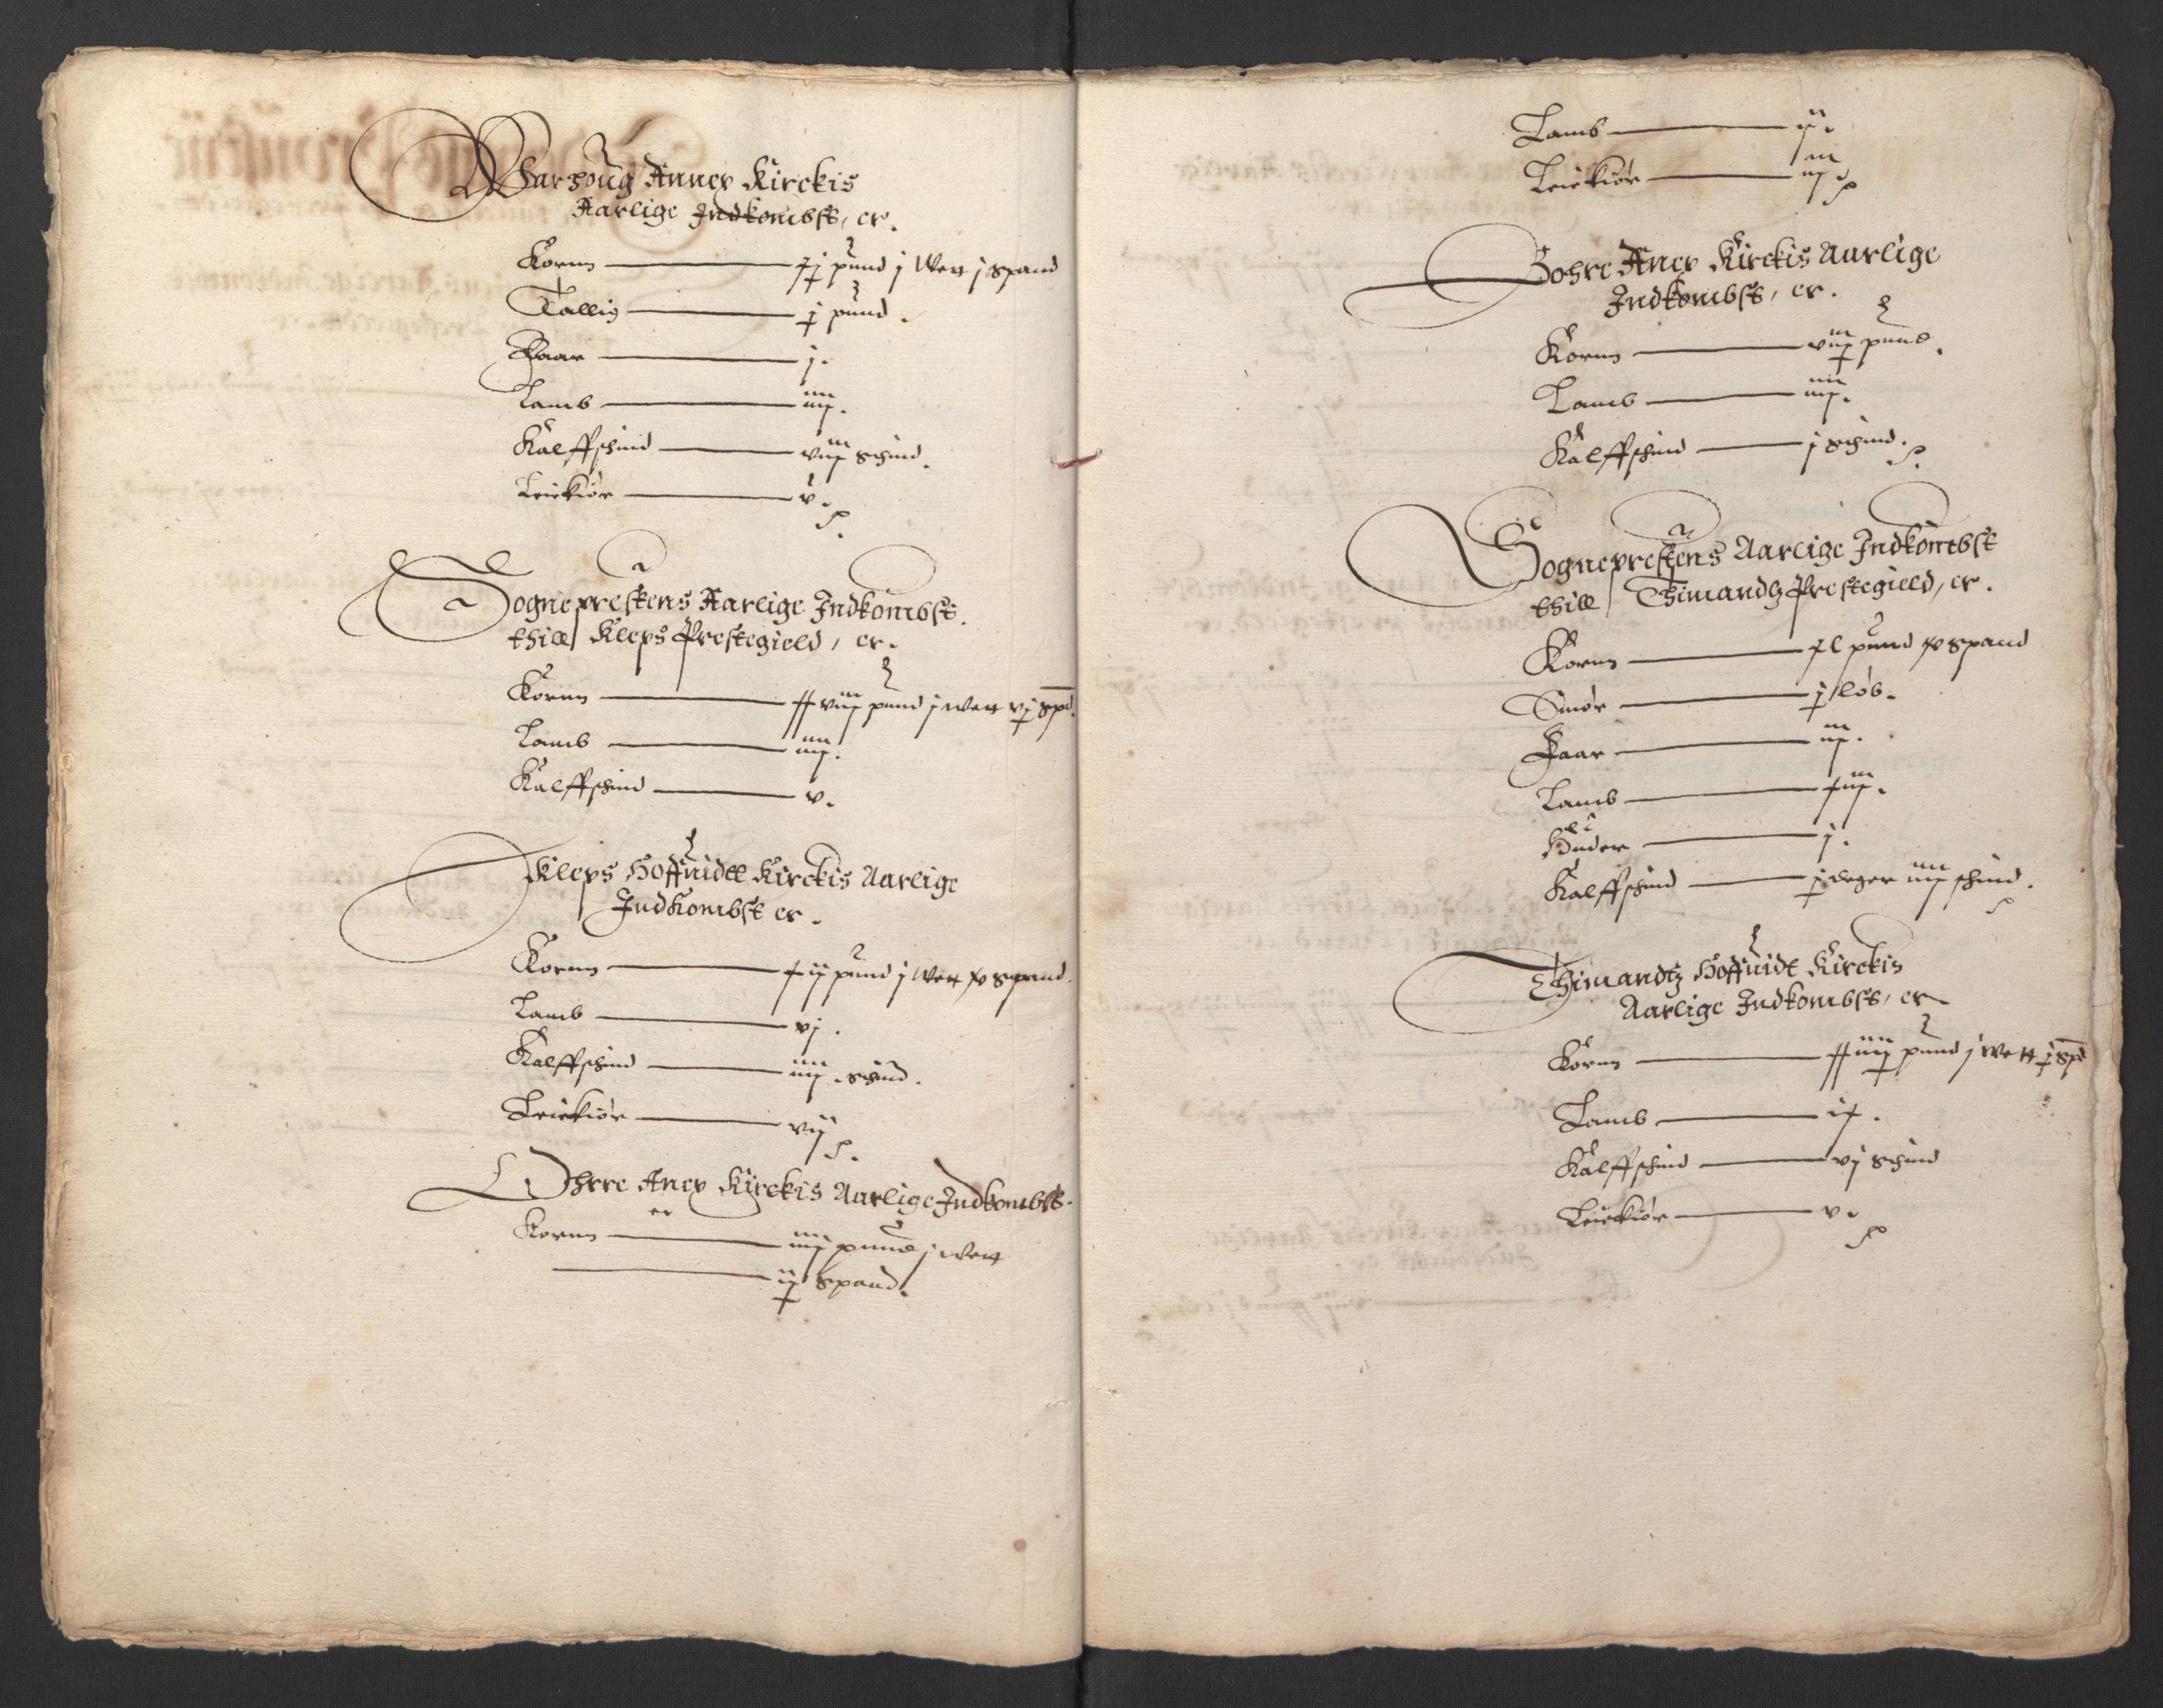 Warhoug Annex Kirckis
Aarlige Indkombst, er.
Kornn — pund j Wett j spand
Tallig — pund.
Faar — j.
Lamb — iiij.
Kalffschind — viij schind.
Leiekiør — v.
Sogneprestens Aarlige Indkombst.
thill Kleps Prestegield, er.
Kornn — xxviij pund j wett spd.
Lamb — iiij.
Kalffschind — v.
Kleps Hoffuidt Kirckis Aarlige
Indkombst er.
Kornn — xij pund j wett spand.
Lamb — vj.
Kalffschind — iiij schind.
Leiekiør — vij
Ohrre Anex Kirckis Aarlige Indkombst.
er
Kornn — iiij pund j wett
— spand.
Lamb — ij.
Leiekiør — iij
Bohre Anex Kirckis Aarlige
Indkombst, er.
Kornn — pund.
Lamb — iiij.
Kalffschind — j schind.
Sogneprestens Aarlige Indkombst
thill Thimandtz Prestegield, er.
Kornn — xl pund spand
Smør — løb.
Faar — iij.
Lamb — xiij.
Huder — j.
Kalffschind — deger iiij schind.
Thimandtz Hoffuidt Kirckis
Aarlige Indkombst, er
Kornn — pund j wett spd
Lamb — ix.
Kalffschind — vj schind
Leiekiør — v.